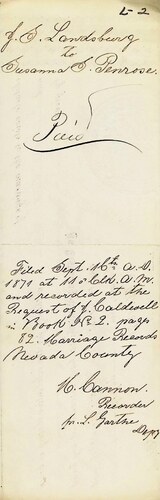 L-2
J. E. Landsburg
to
Susanna S. Penrose.
Paid
Filed Sept. 16th A.D.
1879 at 11 o'clk. A.M.
and recorded at the
Request of J. Caldwell
in Book No. 2. page
82. Marriage Records
Nevada County
H. Cannon.
Recorder
pr. L. Garthe
Depy